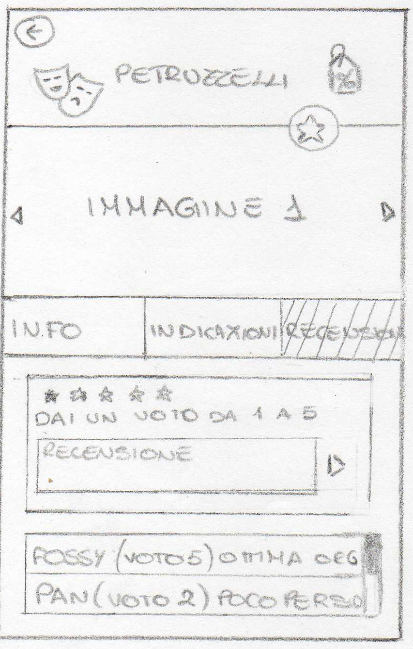 PETRUZZELLI
%
IMMAGINE 1
INFO
INDICAZIONI
RECENSION
DAI UN VOTO DA 1 A 5
RECENSIONE
POSSY (VOTO 5)
PAN (VOTO 2) POCO PERSO